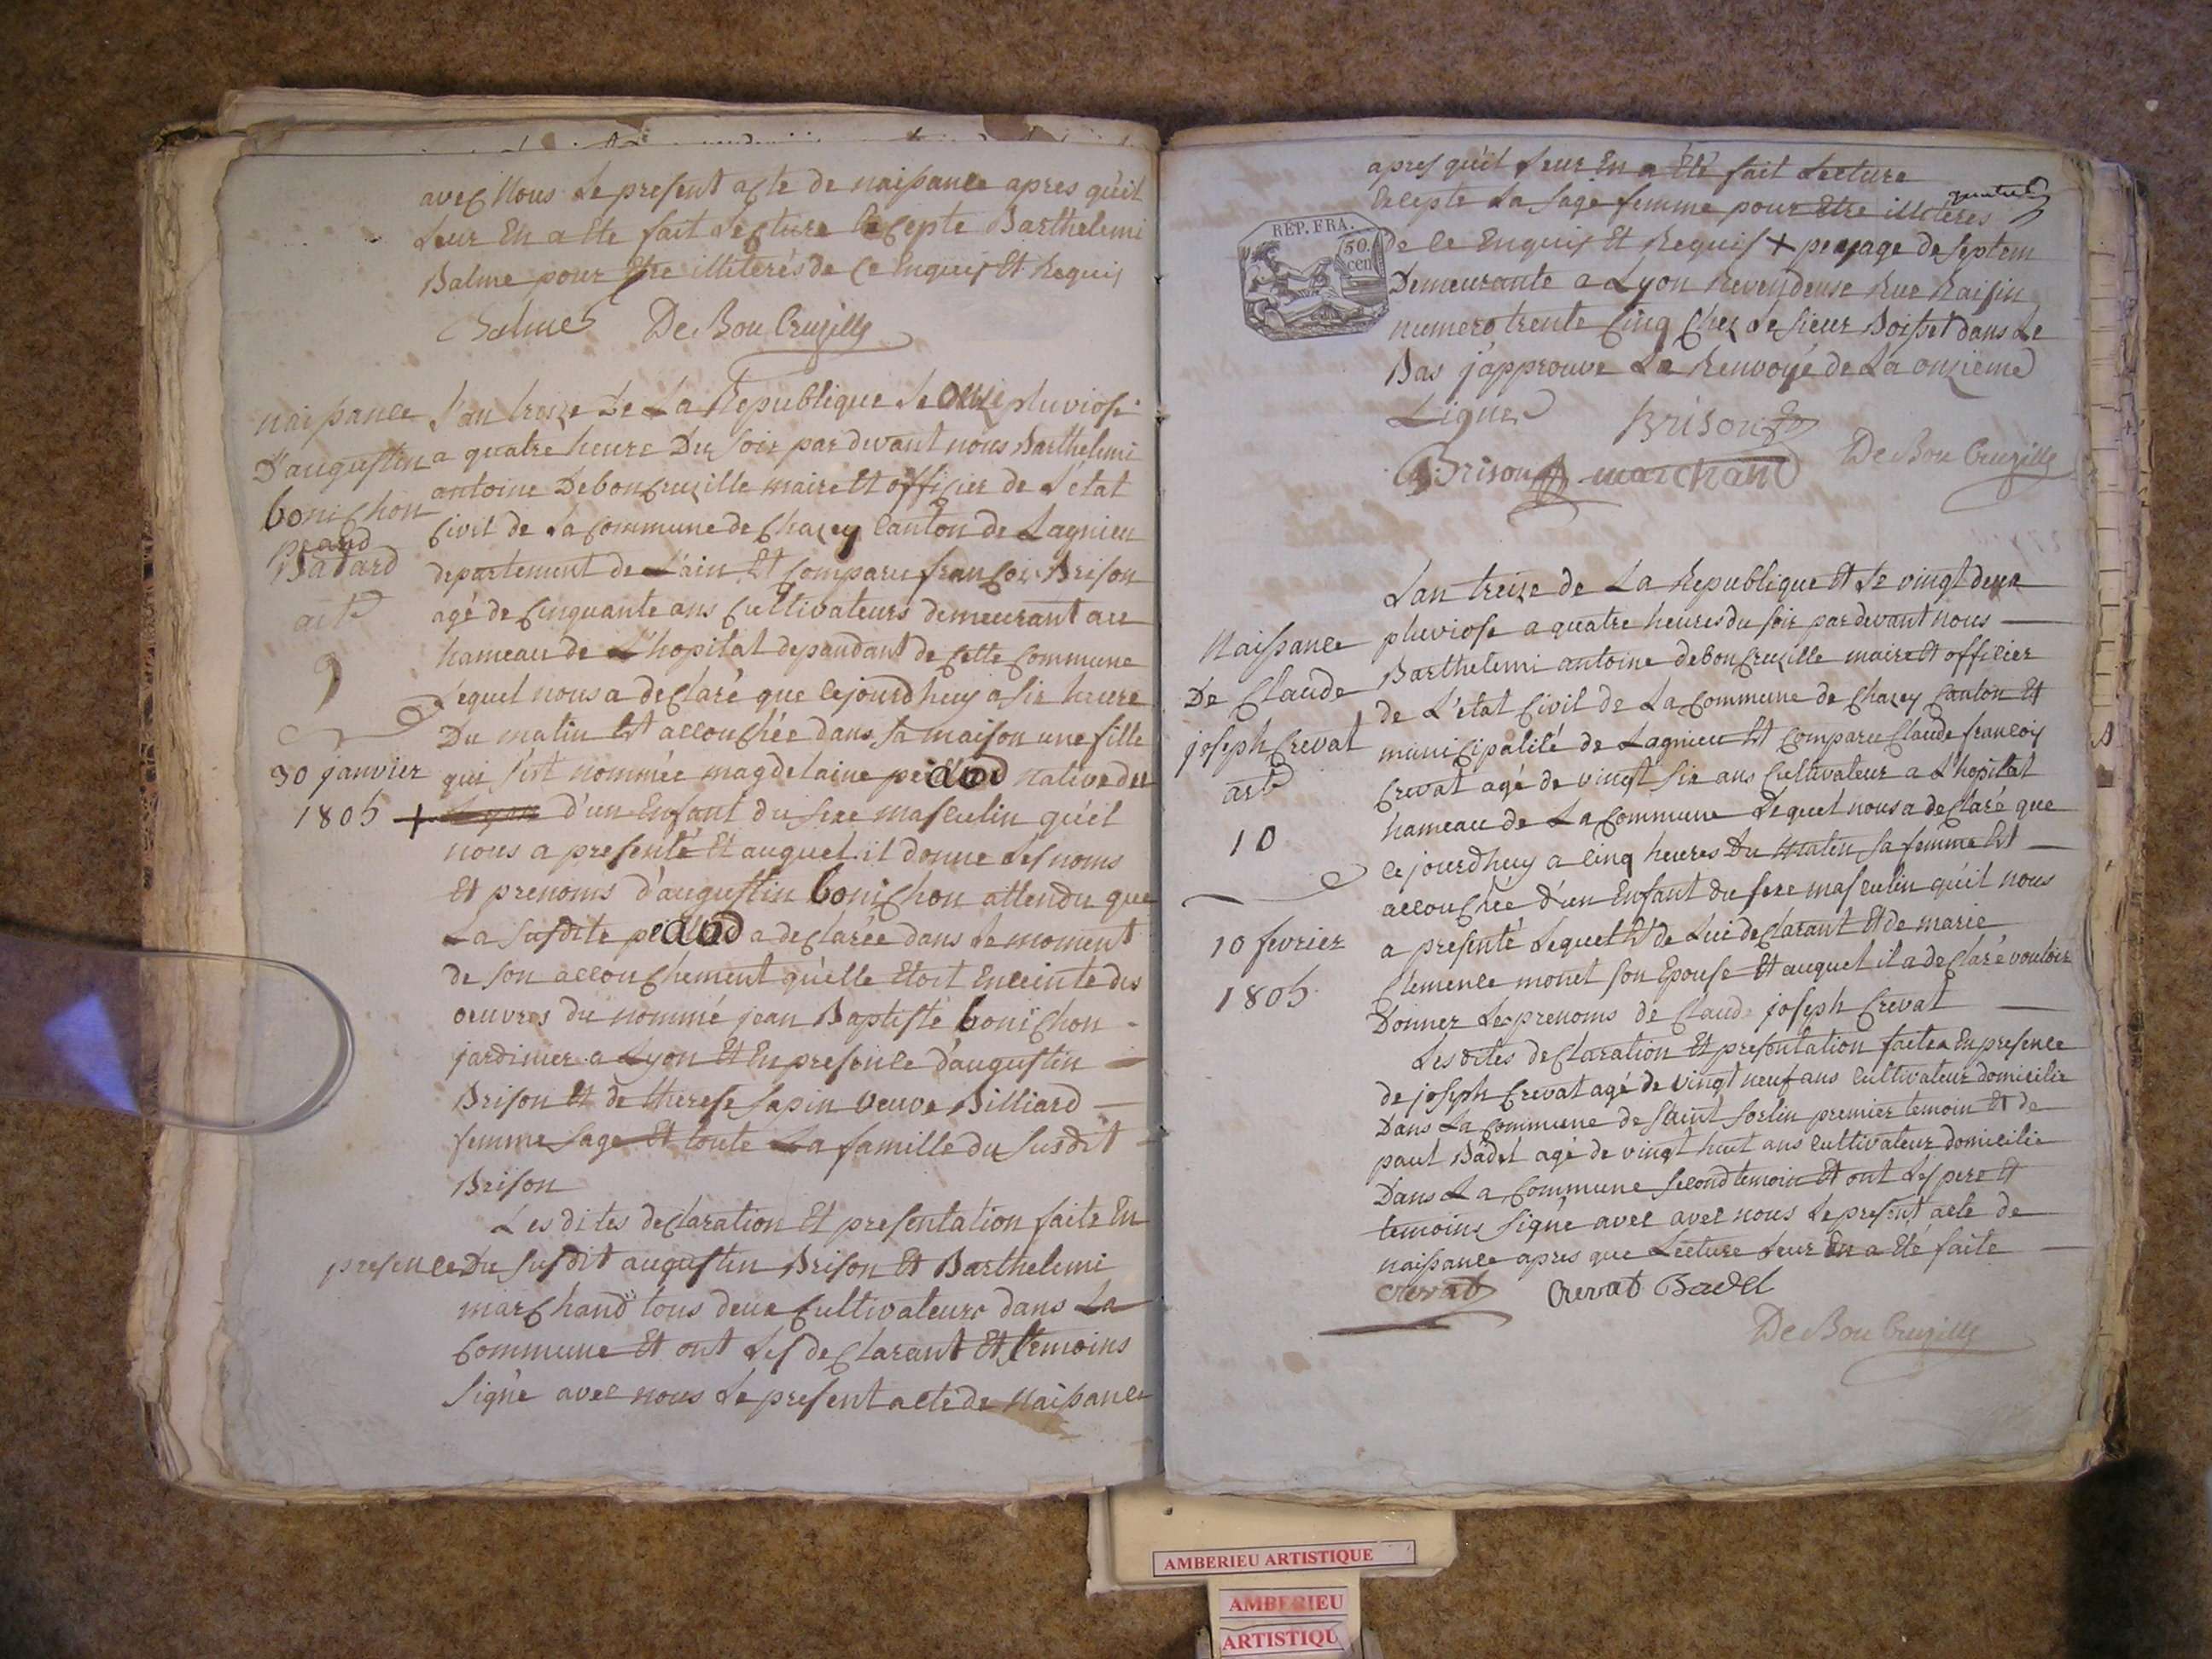 avec Nous Le present acte de naissance apres qu'il
Leur En a Ete fait Lecture Excepté Barthelemi
Balme pour Etre illiterés de Ce Enquis Et Requis
Balme De Bou Cruzille
naissance
D'augustin
bonichon
Batard
acte
9
30 janvier
1805
L'an treize De La Republique Le onze pluviose
a quatre heure Du Soir par devant nous Barthelemi
antoine Deboucruzille maire Et officier de L'état
Civil de La Commune de Chazey Canton de Lagnieu
departement de L'ain Et Comparu françois Brison
agé de Cinquante ans Cultivateurs demeurant au
hameau de L'hopital dependant de Cette Commune
Lequel nous a declaré que Cejourdhuy a Six heure
Du matin Est accouchée dans Sa maison une fille
qui S'est nommée magdelaine native du
+ Lyon d'un Enfant du Sexe masculin qu'il
nous a presenté Et auquel il donne Les noms
Et prenoms d'augustin bonichon attendu que
La Susdite a declarée dans Le moment
de Son accouchement qu'elle Etoit Enceinte des
oeuvres du nommé jean Baptiste bonichon
jardinier a Lyon Et En presence d'augustin
Brison Et de therese Sapin veuve Billiard
femme Sage Et toute La famille du Susdit
Brison
Lesdites declaration Et presentation faite En
presence Du Susdit augustin Brison Et Barthelemi
marchand tous deux Cultivateurs dans La
Commune Et ont Les declarant Et temoins
Signé avec nous Le present acte de Naissance
apres qu'il Leur En a Eté fait Lecture
Excepté La Sage femme pour Etre illiteres
REP. FRA.
50.
cen
de Ce Enquis Et Requis + de Septem
Demeurante a Lyon Revendeuse Rue Raisin
numero trente Cinq Chez Le Sieur Boisset dans Le
Bas j'approuve Le Renvoyé de La onzieme
Ligne
Brison
Brison marchand De Bou Cruzille
Naissance
De Claude
joseph Crevat
acte
10
10 fevrier
1805
Lan treize de La Republique Et Le vingt deux
pluviose a quatre heures du Soir par devant nous
Barthelemi antoine deboucruzille maire et officier
de L'état Civil de La Commune de Chazey Canton Et
municipalité de Lagnieu Est Comparu Claude françois
Crevat agé de vingt Six ans Cultivateur a L'hopital
hameau de La Commune Lequel nous a declaré que
Cejourdhuy a Cinq heures Du matin Sa femme Est
accouchée d'un Enfant du Sexe masculin qu'il nous
a presenté Lequel Est de Lui declarant Et de marie
Clemence monet Son Epouse Et auquel il a declaré vouloir
Donner Les prenoms de Claude joseph Crevat
Lesdites declaration Et presentation faites En presence
de joseph Crevat agé de vingt neuf ans Cultivateur domicilié
Dans La Commune de Saint Sorlin premier temoin Et de
paul Badel agé de vingt huit ans Cultivateur domicilié
Dans La Commune Second temoin Et ont Les pere Et
temoins Signé avec avec nous Le present acte de
naissance apres que Lecture Leur En a Eté faite
Crevat Crevat Badel
De Bou Cruzille
AMBERIEU ARTISTIQUE
AMBERIEU
ARTISTIQU